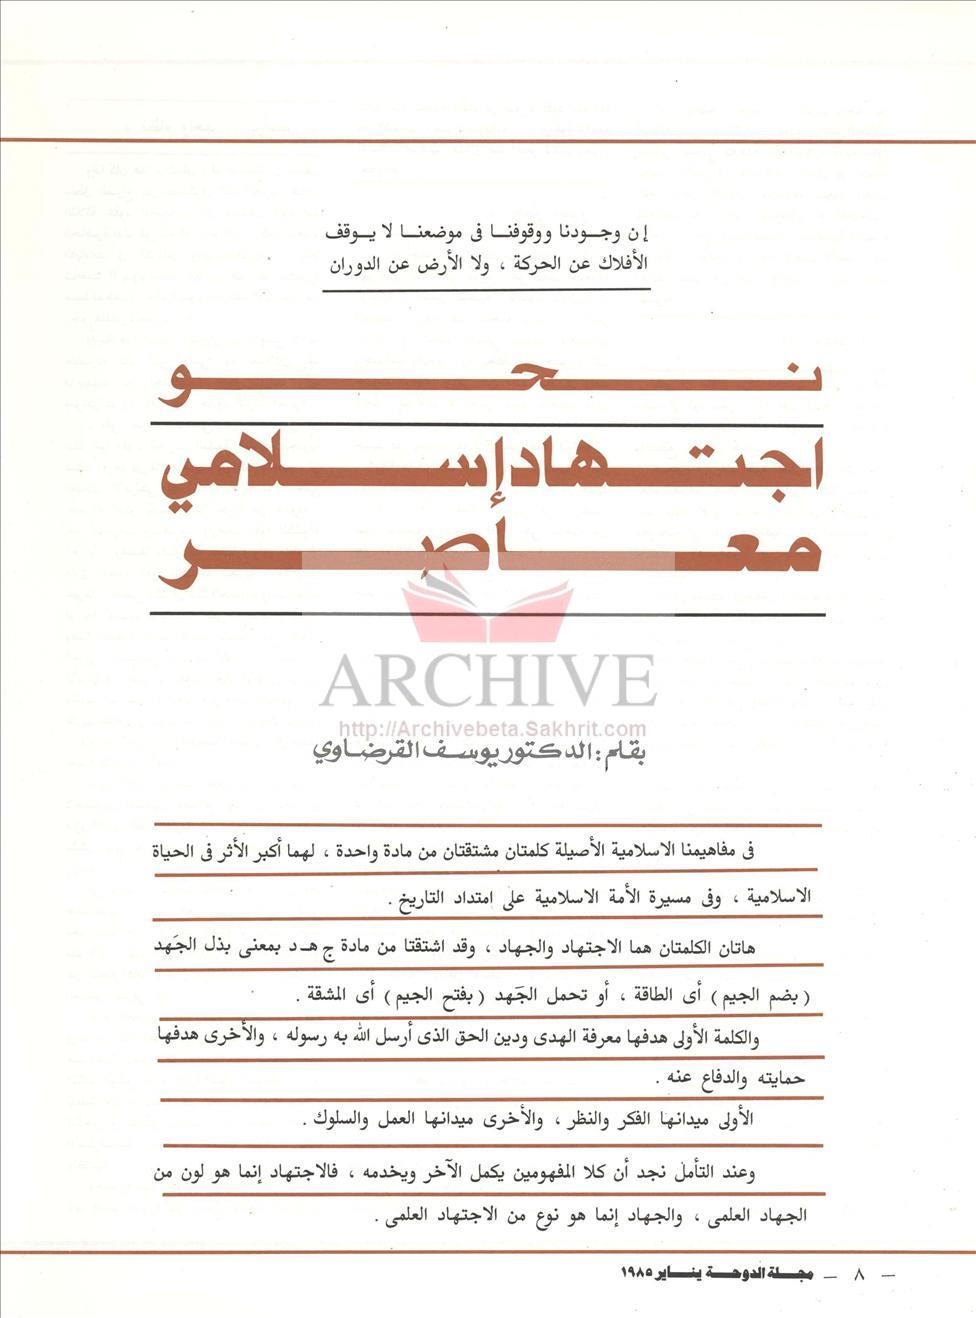 إن وجودنا ووقوفنا فى موضعنا لا يوقف
الأفلاك عن الحركة ، ولا الأرض عن الدوران
نحو
اجتهاد إسلامي
معاصر
ARCHIVE
http://Archivebeta.Sakhrit.com
بقلم : الدكتور يوسف القرضاوي
فى مفاهيمنا الاسلامية الأصيلة كلمتان مشتقتان من مادة واحدة ، لهما أكبر الأثر فى الحياة
الاسلامية ، وفى مسيرة الأمة الاسلامية على امتداد التاريخ .
هاتان الكلمتان هما الاجتهاد والجهاد ، وقد اشتقتا من مادة ج هـ د بمعنى بذل الجَهد
( بضم الجيم ) أى الطاقة ، أو تحمل الجَهد ( بفتح الجيم ) أى المشقة .
والكلمة الأولى هدفها معرفة الهدى ودين الحق الذى أرسل الله به رسوله ، والأخرى هدفها
حمايته والدفاع عنه .
الأولى ميدانها الفكر والنظر ، والأخرى ميدانها العمل والسلوك .
وعند التأمل نجد أن كلا المفهومين يكمل الآخر ويخدمه ، فالاجتهاد إنما هو لون من
الجهاد العلمى ، والجهاد إنما هو نوع من الاجتهاد العلمى .
— ٨ — مجلة الدوحة يناير ١٩٨٥